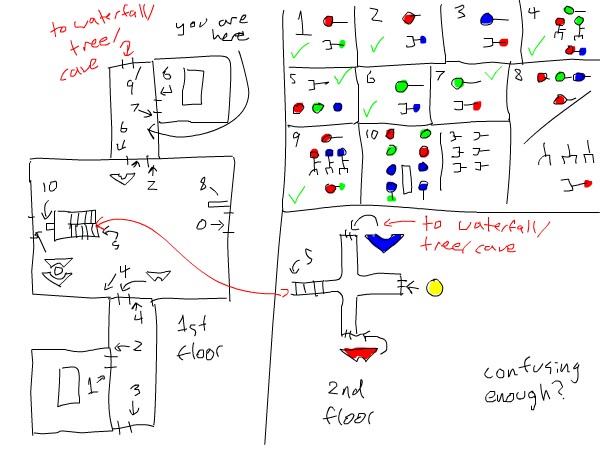 to waterfall/
tree/
cave
you are
here
9
6
7
6
2
10
8
0
5
0
4
4
1st
floor
2
1
3
1
2
3
4
5
6
7
8
9
10
to waterfall/
tree/cave
5
2nd
floor
confusing
enough?